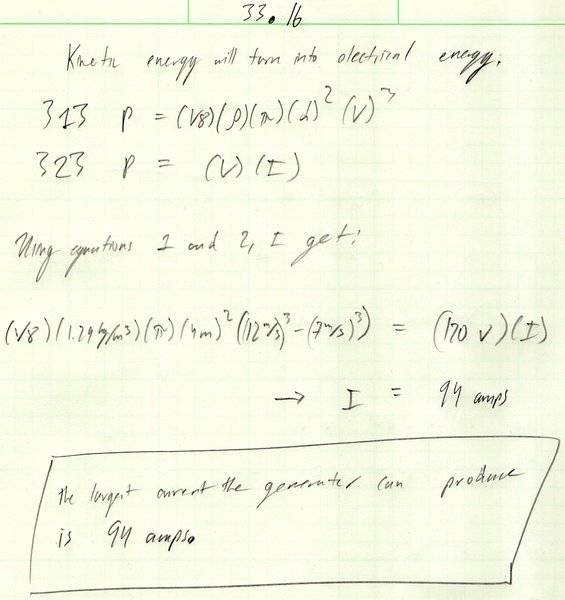 33.16
Kinetic energy will turn into electrical energy:
313 P = (1/8)(ρ)(π)(d)² (V)³
323 P = (V)(I)
Using equations 1 and 2, I get:
(1/8)(1.29 kg/m³)(π)(4m)²((12 m/s)³-(7 m/s)³) = (170 V)(I)
→ I = 94 amps
The largest current the generator can produce
is 94 amps.